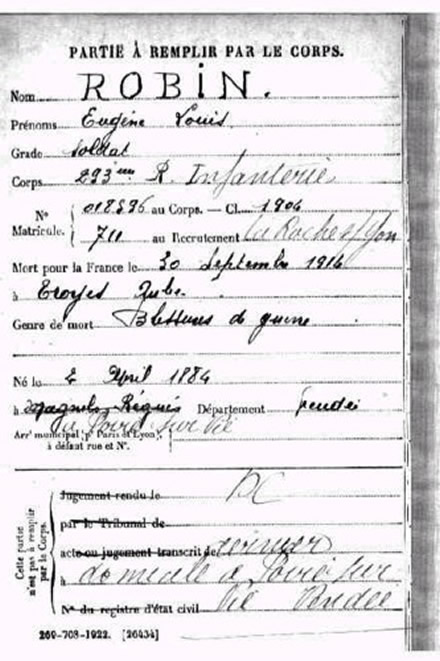 PARTIE À REMPLIR PAR LE CORPS.
Nom ROBIN.
Prénoms Eugène Louis
Grade soldat
Corps 293ème R. Infanterie
N° Matricule. 018596 au Corps. — Cl. 1904
711 au Recrutement La Roche s/Yon
Mort pour la France le 30 Septembre 1914
à Troyes Aube
Genre de mort Blessures de guerre
Né le 2 Avril 1884
à Département Vendée
le Poiré sur Vie
Arrt municipal (pr Paris et Lyon),
à défaut rue et N°.
Cette partie n'est pas à remplir par le Corps.
Jugement rendu le DC
par le Tribunal de
acte ou jugement transcrit de
à domicile à Poiré sur
N° du registre d'état civil Vie Vendée
269-708-1922. [26434]